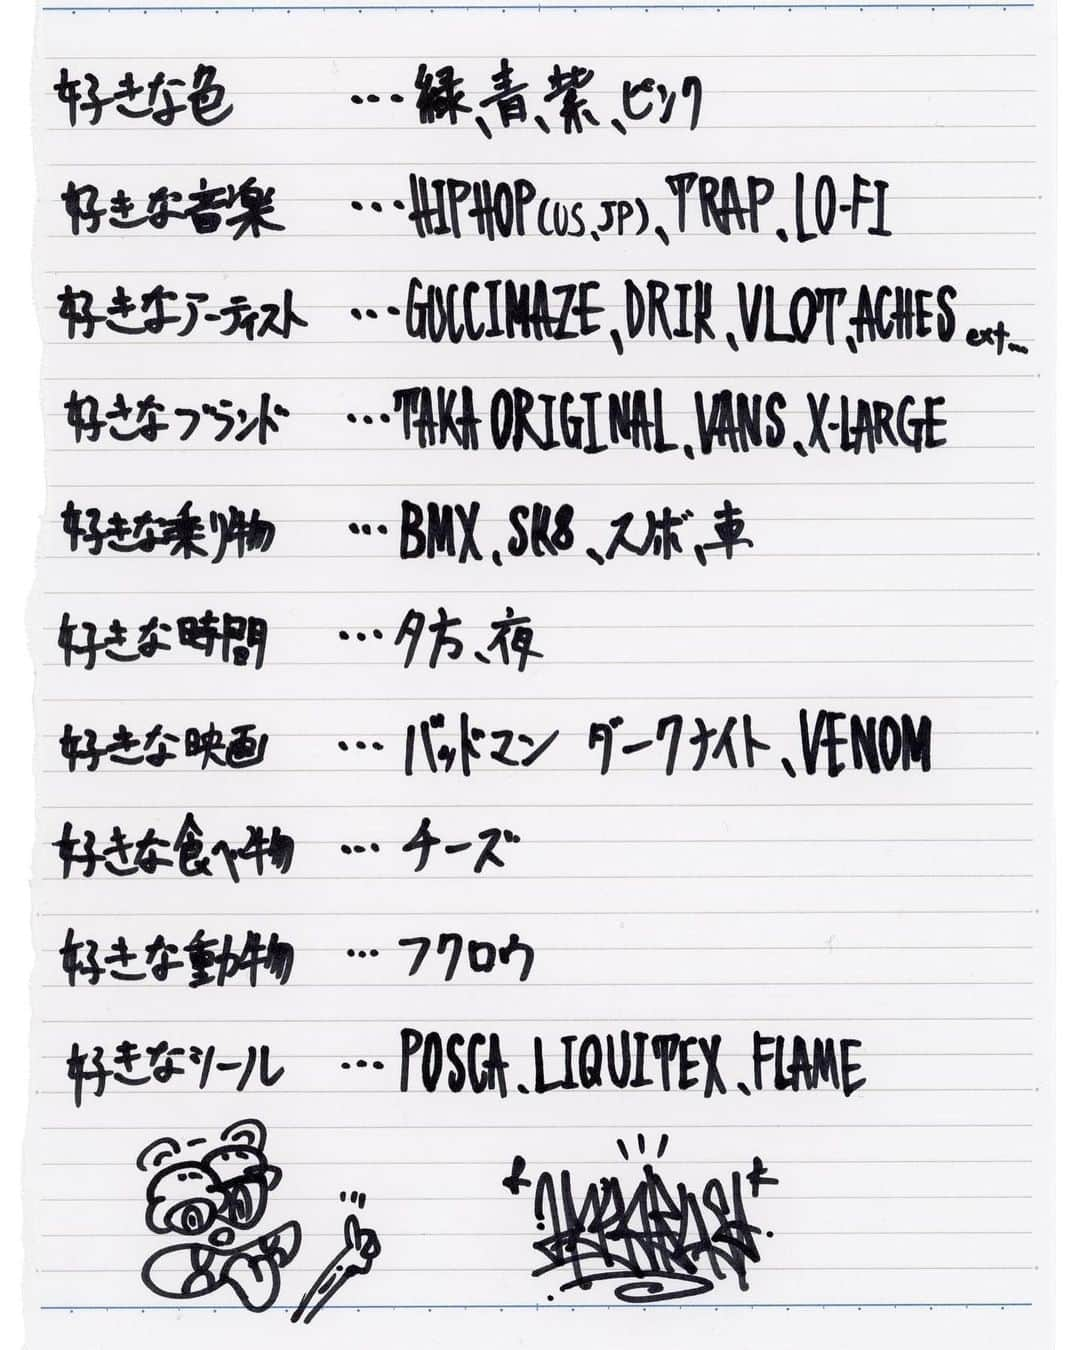 好きな色 …緑、青、紫、ピンク
好きな音楽 …HIPHOP(US、JP)、TRAP、LO-FI
好きなアーティスト …GUCCIMAZE、DRIK、VLOT、ACHES ext…
好きなブランド …TAKA ORIGINAL、VANS、X-LARGE
好きな乗り物 …BMX、SK8、スノボ、車
好きな時間 …夕方、夜
好きな映画 …バッドマン ダークナイト、VENOM
好きな食べ物 …チーズ
好きな動物 …フクロウ
好きなシール …POSCA、LIQUITEX、FLAME